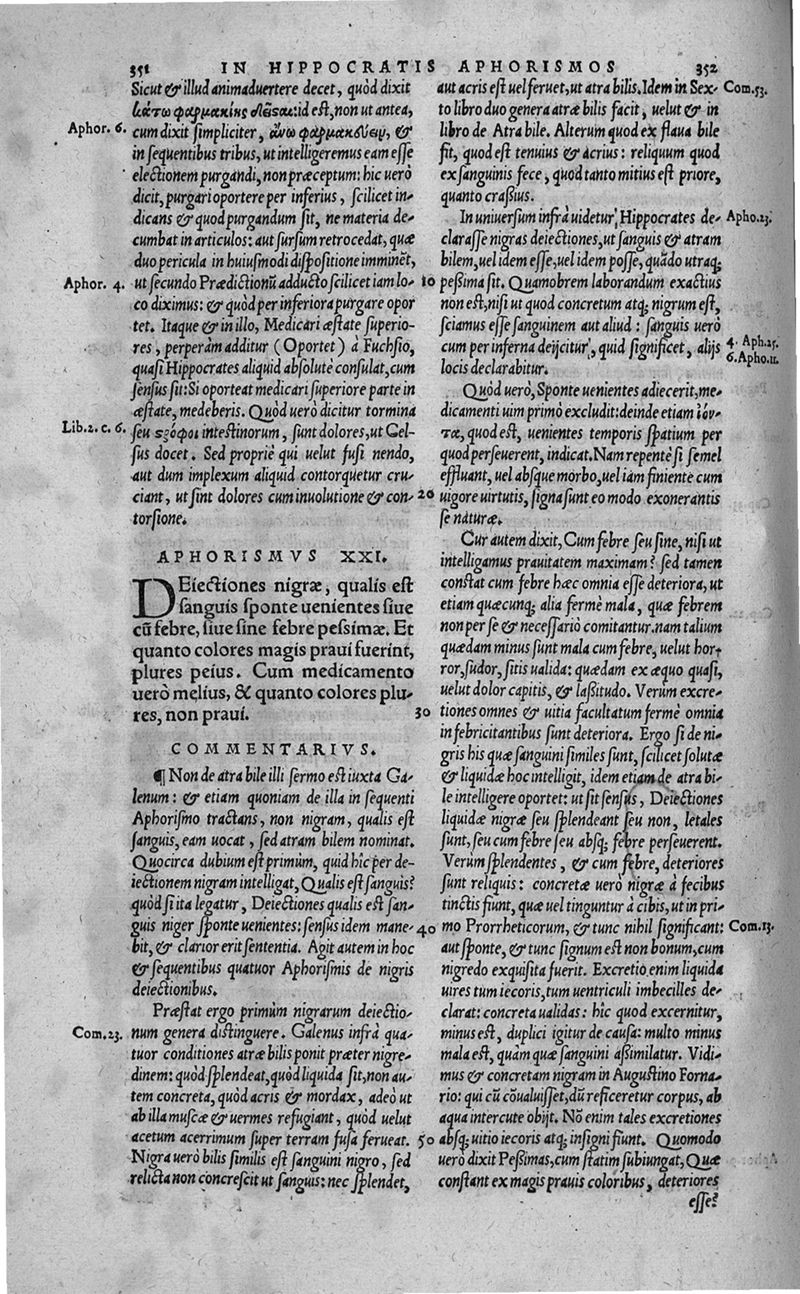 351 IN HIPPOCRATIS APHORISMOS 352
Sicut & illud animaduertere decet, quòd dixit
κάτω φαρμακίης δεῖσθαι: id est, non ut antea,
Aphor. 6. cum dixit simpliciter, ἄνω φαρμακεύειν, &
in sequentibus tribus, ut intelligeremus eam esse
electionem purgandi, non præceptum: hic uerò
dicit, purgari oportere per inferius, scilicet in-
dicans & quod purgandum sit, ne materia de-
cumbat in articulos: aut sursum retrocedat, quæ
duo pericula in huiusmodi dispositione imminēt,
Aphor. 4. ut secundo Prædictionū adducto scilicet iam lo-
co diximus: & quòd per inferiora purgare opor
tet. Itaque & in illo, Medicari æstate superio-
res, perperàm additur (Oportet) à Fuchsio,
quasi Hippocrates aliquid absolutè consulat, cum
sensus sit: Si oporteat medicari superiore parte in
æstate, medeberis. Quòd uerò dicitur tormina
Lib. 2. c. 6. seu στρόφοι intestinorum, sunt dolores, ut Cel-
sus docet. Sed propriè qui uelut fusi nendo,
aut dum implexum aliquid contorquetur cru-
ciant, ut sint dolores cum inuolutione & con-
torsione.
APHORISMVS XXI.
DEiectiones nigræ, qualis est
sanguis sponte uenientes siue
cū febre, siue sine febre pessimæ. Et
quanto colores magis praui fuerint,
plures peius. Cum medicamento
uerò melius, & quanto colores plu-
res, non praui.
COMMENTARIVS.
¶ Non de atra bile illi sermo est iuxta Ga-
lenum: & etiam quoniam de illa in sequenti
Aphorismo tractans, non nigram, qualis est
sanguis, eam uocat, sed atram bilem nominat.
Quocirca dubium est primùm, quid hîc per de-
iectionem nigram intelligat, Qualis est sanguis?
quòd si ita legatur, Deiectiones qualis est san-
guis niger sponte uenientes: sensus idem mane-
bit, & clarior erit sententia. Agit autem in hoc
& sequentibus quatuor Aphorismis de nigris
deiectionibus.
Præstat ergo primùm nigrarum deiectio-
Com. 23. num genera distinguere. Galenus infrà qua-
tuor conditiones atræ bilis ponit præter nigre-
dinem: quòd splendeat, quòd liquida sit, non au-
tem concreta, quòd acris & mordax, adeò ut
ab illa muscæ & uermes refugiant, quòd uelut
acetum acerrimum super terram fusa ferueat.
Nigra uerò bilis similis est sanguini nigro, sed
relicta non concrescit ut sanguis: nec splendet,
aut acris est uel feruet, ut atra bilis. Idem in Sex- Com. 53.
to libro duo genera atræ bilis facit, uelut & in
libro de Atra bile. Alterum quod ex flaua bile
fit, quod est tenuius & acrius: reliquum quod
ex sanguinis fece, quod tanto mitius est priore,
quanto crassius.
In uniuersum infrà uidetur Hippocrates de- Apho. 23.
clarasse nigras deiectiones, ut sanguis & atram
bilem, uel idem esse, uel idem posse, quādo utraq;
10 pessima sit. Quamobrem laborandum exactius
non est, nisi ut quod concretum atq; nigrum est,
sciamus esse sanguinem aut aliud: sanguis uerò
cum per inferna deijcitur, quid significet, alijs 4. Aph. 25.
locis declarabitur. 6. Apho. 11.
Quòd uerò, Sponte uenientes adiecerit, me-
dicamenti uim primò excludit: deinde etiam ἰόν-
τα, quod est, uenientes temporis spatium per
quod perseuerent, indicat. Nam repentè si semel
effluant, uel absque morbo, uel iam finiente cum
20 uigore uirtutis, signa sunt eo modo exonerantis
se naturæ.
Cur autem dixit, Cum febre seu sine, nisi ut
intelligamus prauitatem maximam? sed tamen
constat cum febre hæc omnia esse deteriora, ut
etiam quæcunq; alia fermè mala, quæ febrem
non per se & necessariò comitantur. nam talium
quædam minus sunt mala cum febre, uelut hor-
ror, sudor, sitis ualida: quædam ex æquo quasi,
uelut dolor capitis, & lassitudo. Verùm excre-
30 tiones omnes & uitia facultatum fermè omnia
in febricitantibus sunt deteriora. Ergo si de ni-
gris his quæ sanguini similes sunt, scilicet solutæ
& liquidæ hoc intelligit, idem etiam de atra bi-
le intelligere oportet: ut sit sensus, Deiectiones
liquidæ nigræ seu splendeant seu non, letales
sunt, seu cum febre seu absq; febre perseuerent.
Verùm splendentes, & cum febre, deteriores
sunt reliquis: concretæ uerò nigræ à fecibus
tinctis fiunt, quæ uel tinguntur à cibis, ut in pri-
40 mo Prorrheticorum, & tunc nihil significant: Com. 13.
aut sponte, & tunc signum est non bonum, cum
nigredo exquisita fuerit. Excretio enim liquida
uires tum iecoris, tum uentriculi imbecilles de-
clarat: concreta ualidas: hic quod excernitur,
minus est, duplici igitur de causa: multo minus
mala est, quàm quæ sanguini assimilatur. Vidi-
mus & concretam nigram in Augustino Forna-
rio: qui cū cōualuisset, dū reficeretur corpus, ab
aqua intercute obijt. Nō enim tales excretiones
50 absq; uitio iecoris atq; insigni fiunt. Quomodo
uerò dixit Pessimas, cum statim subiungat, Quæ
constant ex magis prauis coloribus, deteriores
esse?